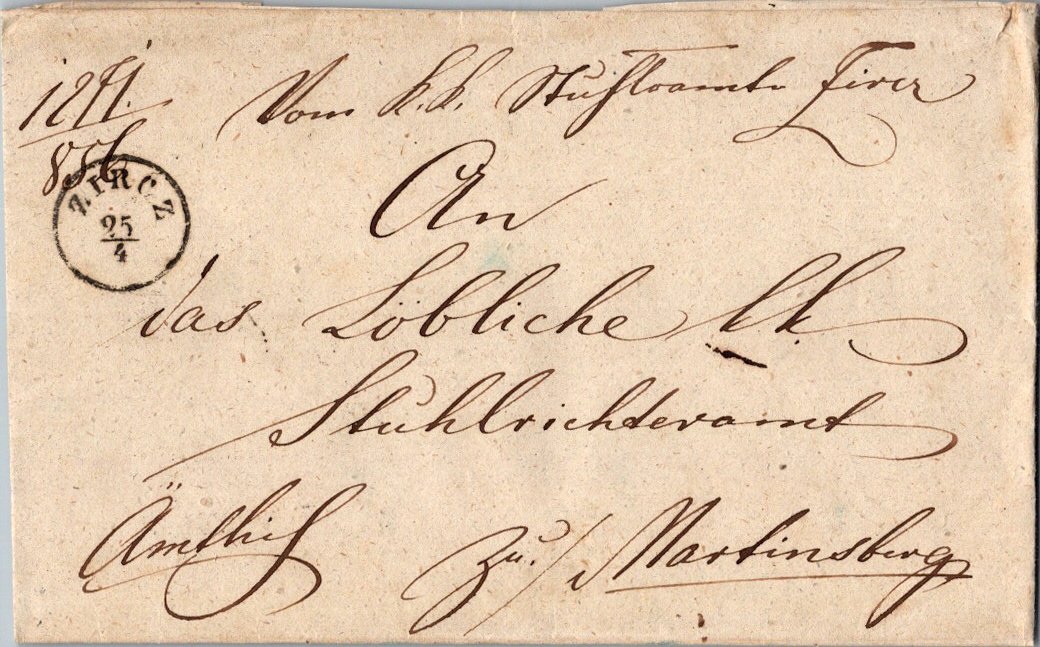 Vom k. k. Stuhlramte Zircz
856
ZIRCZ
25
4
An
das Löbliche k k.
Stuhlrichteramt
Ämtlich zu / Martinsberg